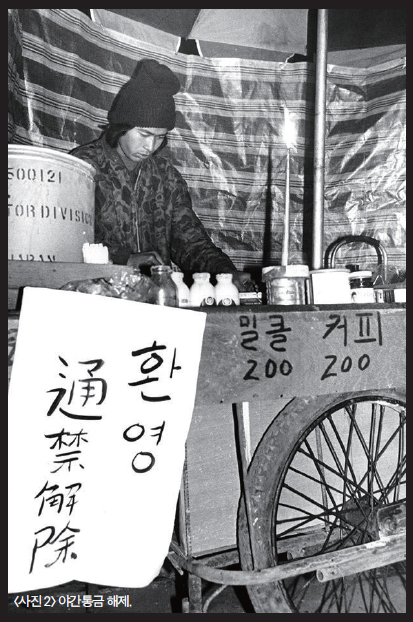 500121
TOR DIVISION
JAPAN
밀클 커피
200 200
환영
通禁解除
<사진 2> 야간통금 해제.